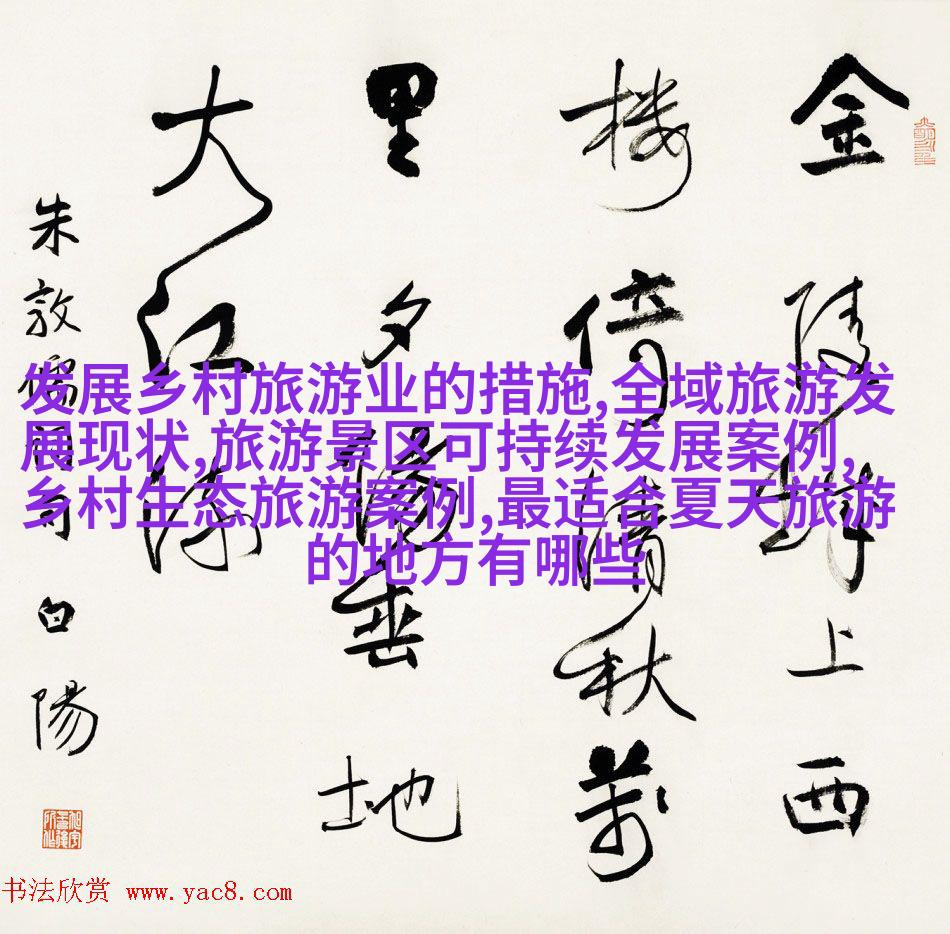 金陵城上西
楼倚清秋萬
里夕陽垂地
大江流
朱敦儒词 白陽
发展乡村旅游业的措施,全域旅游发
展现状,旅游景区可持续发展案例,
乡村生态旅游案例,最适合夏天旅游
的地方有哪些
书法欣赏 www.yac8.com